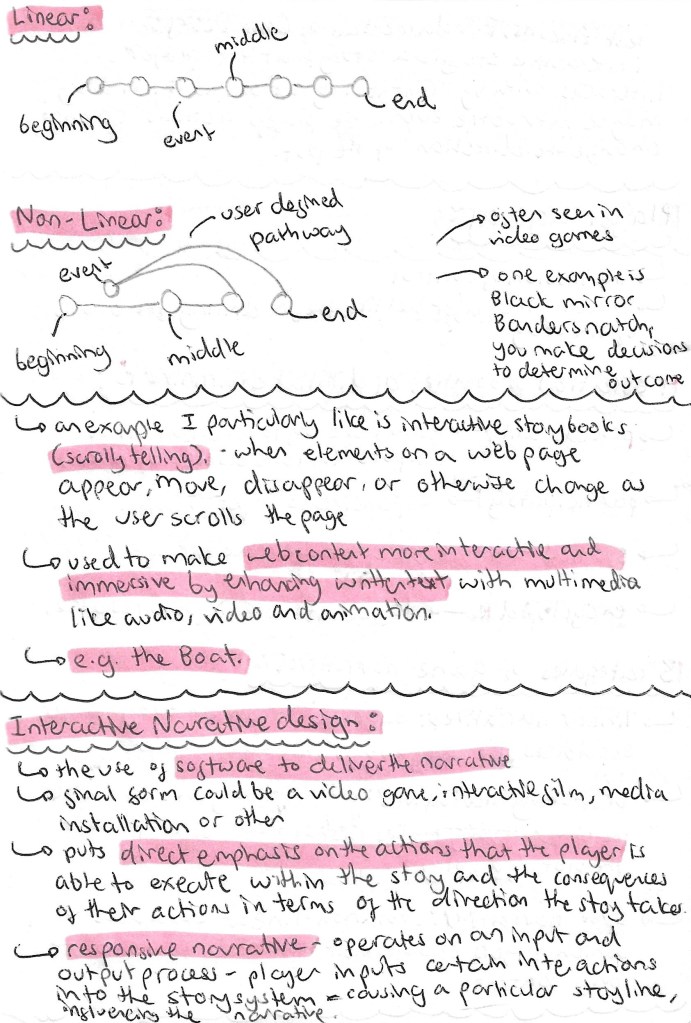 Linear:
middle
beginning
event
end
Non-Linear:
user defined
pathway
event
beginning
middle
end
often seen in
video games
one example is
Black mirror
Bandersnatch,
you make decisions
to determine
outcome
an example I particularly like is interactive storybooks
(scrolly telling). - when elements on a web page
appear, move, disappear, or otherwise change as
the user scrolls the page
used to make web content more interactive and
immersive by enhancing written text with multimedia
like audio, video and animation.
e.g. the Boat.
Interactive Narrative design:
the use of software to deliver the narrative
final form could be a video game, interactive film, media
installation or other
puts direct emphasis on the actions that the player is
able to execute within the story and the consequences
of their actions in terms of the direction the story takes.
responsive narrative - operates on an input and
output process - player inputs certain interactions
into the story system = causing a particular storyline,
influencing the narrative.